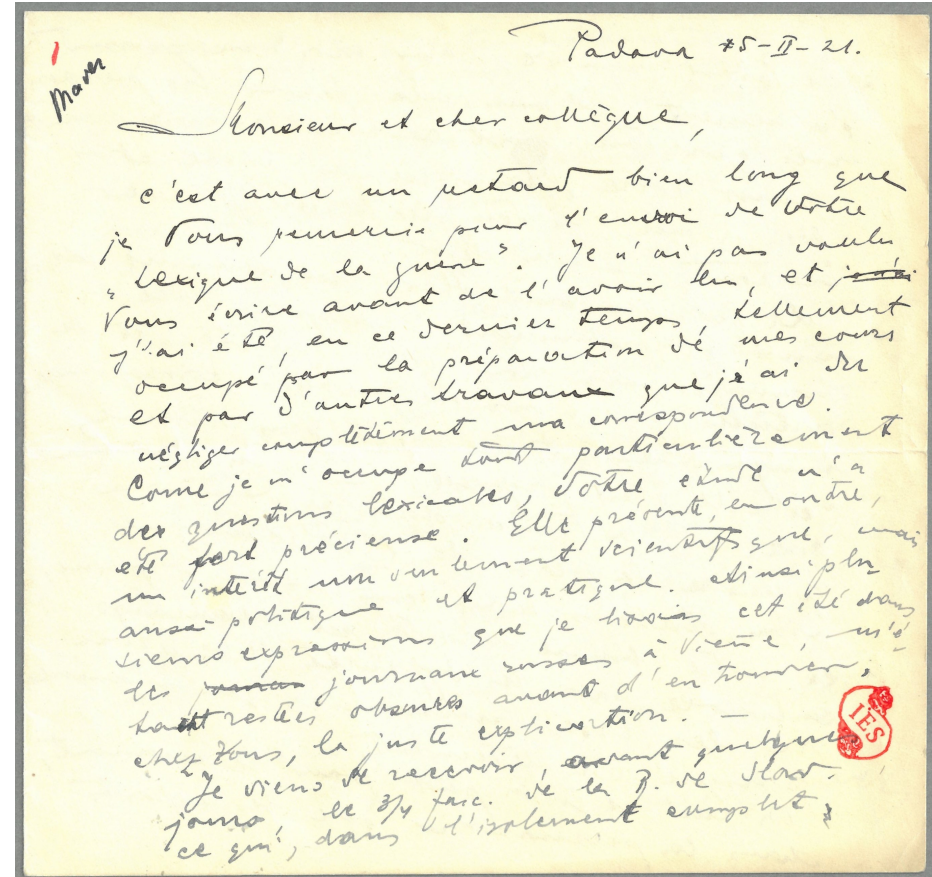 Maver
Padova 25-II-21.
Monsieur et cher collègue,
c'est avec un retard bien long que
je Vous remercie pour l'envoi de Votre
„Lexique de la guerre". Je n'ai pas voulu
Vous écrire avant de l'avoir lu, et
j'ai été, en ce dernier temps, tellement
occupé par la préparation de mes cours
et par d'autres travaux que j'ai du
négliger complètement ma correspondence.
Come je m'occupe tout particulièrement
des questions lexicales, Votre étude m'a
été fort précieuse. Elle présente, en outre,
un intérêt non seulement scientifique, mais
aussi politique et pratique. Ainsi plu-
sieurs expressions que je lisais cet été dans
les journaux russes à Viene, m'é-
taient restées obscures avant d'en trouver,
chez Vous, la juste explication. —
Je viens de recevoir, avant quelques
jours, le 3/4 fasc. de la R. de Slav.
ce qui, dans l'isolement complet
IES